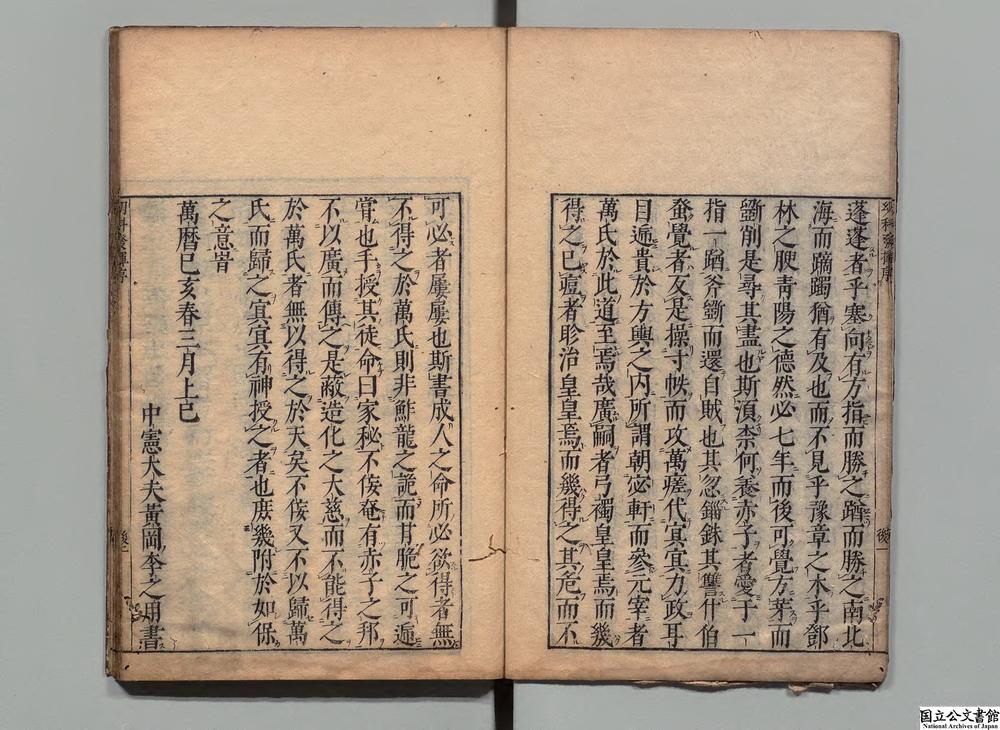 蓬蓬者乎塞向有方指而勝之蹈而勝之南北
海而蹢躅猶有及也而不見乎豫章之木乎鄧
林之腴青陽之德然必七年而後可覺方芽而
斵削是尋其盡也斯湏柰何養赤子者愛于一
指一蹈斧斵而還自賊也其忽錙銖其讐什伯
蚤覺者反是操寸帙而攻萬瘥代冥冥力政耳
目遍貴於方輿之内所謂朝宓軒而參元宰者
萬氏於此道至焉哉廣嗣者弓襡皇皇焉而幾
得之已痘者聆治皇皇焉而幾得之其危而不
可必者屢屢也斯書成人之命所必欲得者無
不得之於萬氏則非鮓龍之詭而甘脆之可遍
甞也手授其徒命曰家秘不侫奄有赤子之邦
不以廣而傳之是蔽造化之大慈而不能得之
於萬氏者無以得之於天矣不侫又不以歸萬
氏而歸之冥冥有神授之者也庻幾附於如保
之意旹
萬曆巳亥春三月上巳
中憲大夫黃岡李之用書
後一
後二
国立公文書館
National Archives of Japan